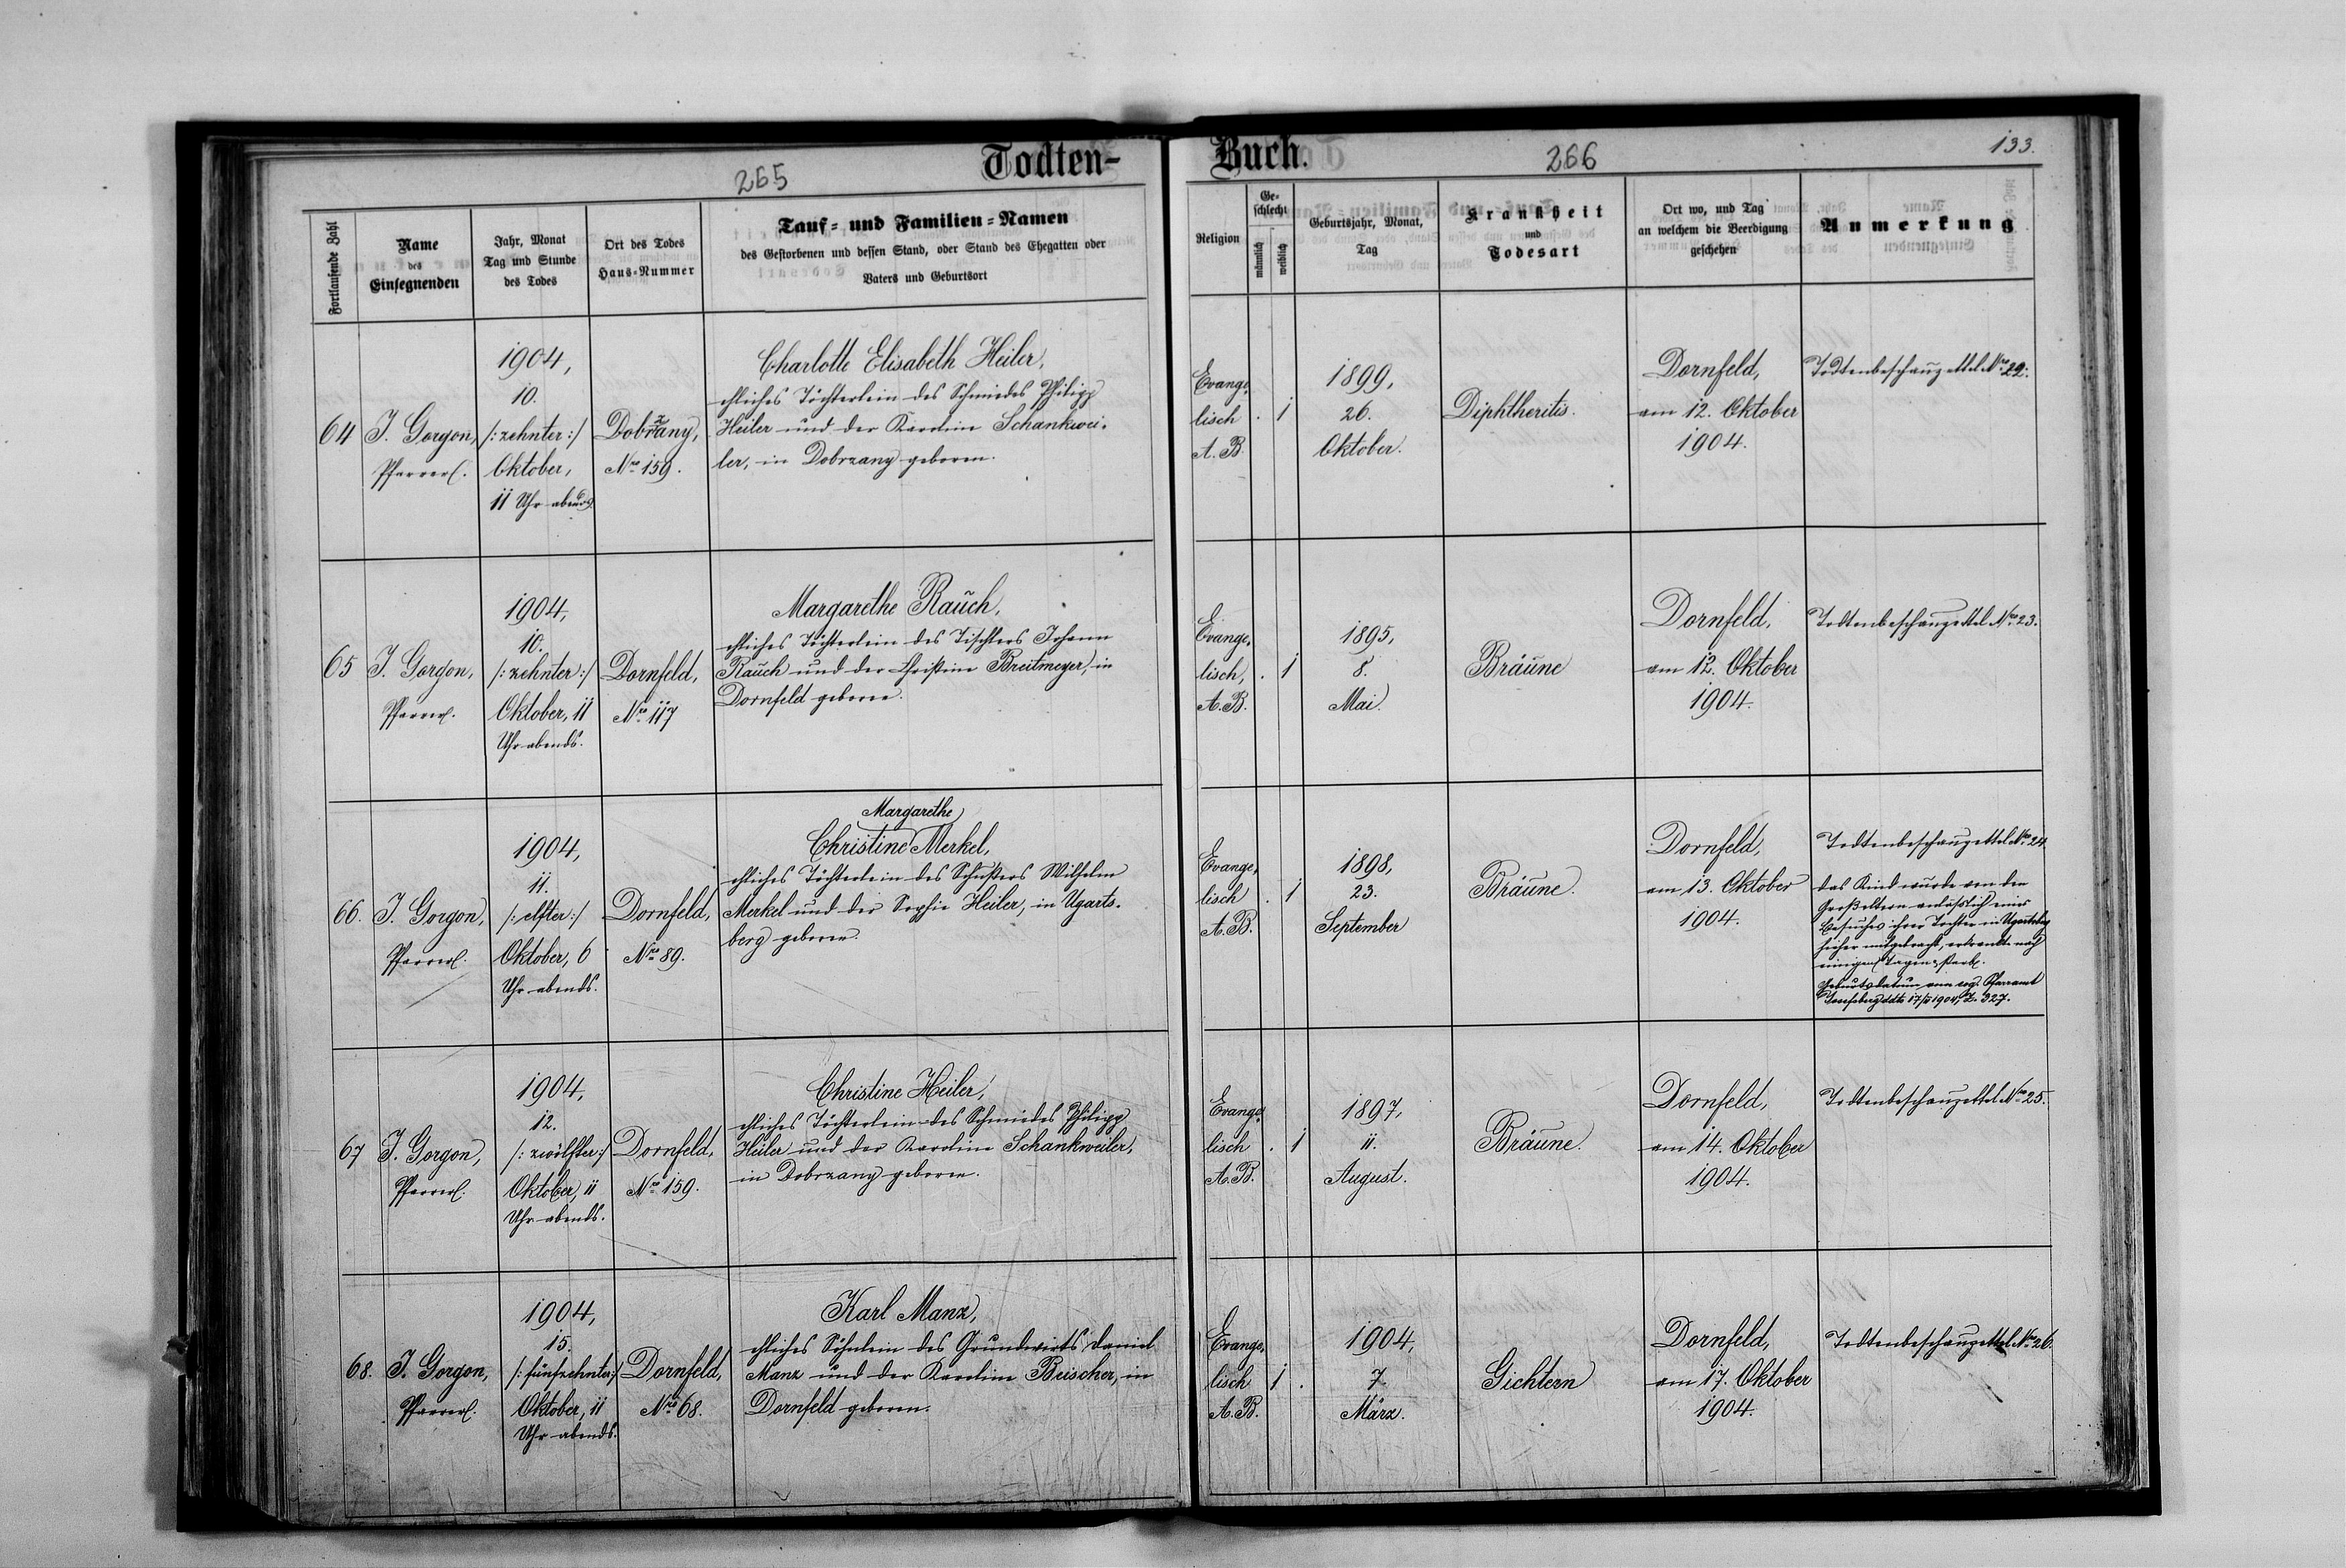 Todten-Buch.
265
266
133.
Fortlaufende Zahl
Name
des
Einsegnenden
Jahr, Monat
Tag und Stunde
des Todes
Ort des Todes
Haus-Nummer
Tauf- und Familien-Namen
des Gestorbenen und dessen Stand, oder Stand des Ehegatten oder
Vaters und Geburtsort
Religion
Ge-
schlecht
männlich
weiblich
Geburtsjahr, Monat,
Tag
Krankheit
und
Todesart
Ort wo, und Tag
an welchem die Beerdigung
geschehen
Anmerkung
64
J. Gorgon,
Pfarrer.
1904,
10.
/: zehnter :/
Oktober,
11 Uhr abends
Dobrzany,
Nro 159.
Charlotte Elisabeth Heiler,
ehliches Töchterlein des Schmiedes Philipp
Heiler und der Karoline Schankwei-
ler, in Dobrzany geboren.
Evange-
lisch
A. B.
. 1
1899,
26.
Oktober.
Diphtheritis.
Dornfeld,
am 12. Oktober
1904.
Todtenbeschauzettel Nro 22.
65
J. Gorgon,
Pfarrer.
1904,
10.
/: zehnter :/
Oktober, 11
Uhr abends.
Dornfeld,
Nro 117
Margarethe Rauch,
ehliches Töchterlein des Tischlers Johann
Rauch und der Christine Breitmeyer, in
Dornfeld geboren.
Evange-
lisch,
A. B.
. 1
1895,
8.
Mai.
Bräune
Dornfeld,
am 12. Oktober
1904.
Todtenbeschauzettel Nro 23.
66.
J. Gorgon,
Pfarrer.
1904,
11.
/: elfter :/
Oktober, 6
Uhr abends.
Dornfeld,
Nro 89.
Margarethe
Christine Merkel,
ehliches Töchterlein des Schusters Wilhelm
Merkel und der Sophie Heiler, in Ugarts-
berg geboren.
Evange-
lisch
A. B.
. 1
1898,
23.
September
Bräune.
Dornfeld,
am 13. Oktober
1904.
Todtenbeschauzettel Nro 24
das Kind wurde von den
Großeltern anläßlich eines
Besuches ihrer Tochter in Ugartsberg
hieher mitgebracht, erkrankte nach
einigen Tagen & starb.
Geburtsdatum vom evg. Pfarramt
Josefsberg ddto 17/ 1904, Z. 327.
67
J. Gorgon,
Pfarrer.
1904,
12.
/: zwölfter :/
Oktober, 11
Uhr abends.
Dornfeld,
Nro 159.
Christine Heiler,
ehliches Töchterlein des Schmiedes Philipp
Heiler und der Karoline Schankweiler,
in Dobrzany geboren.
Evange-
lisch
A. B.
. 1
1897,
11.
August.
Bräune.
Dornfeld,
am 14. Oktober
1904.
Todtenbeschauzettel Nro 25.
68.
J. Gorgon,
Pfarrer.
1904,
15.
/: fünfzehnter :/
Oktober, 11
Uhr abends.
Dornfeld,
Nro 68.
Karl Manz,
ehliches Söhnlein des Grundwirts Daniel
Manz und der Karoline Beischer, in
Dornfeld geboren.
Evange-
lisch
A. B.
1 .
1904,
7.
März.
Gichtern
Dornfeld,
am 17. Oktober
1904.
Todtenbeschauzettel Nro 26.